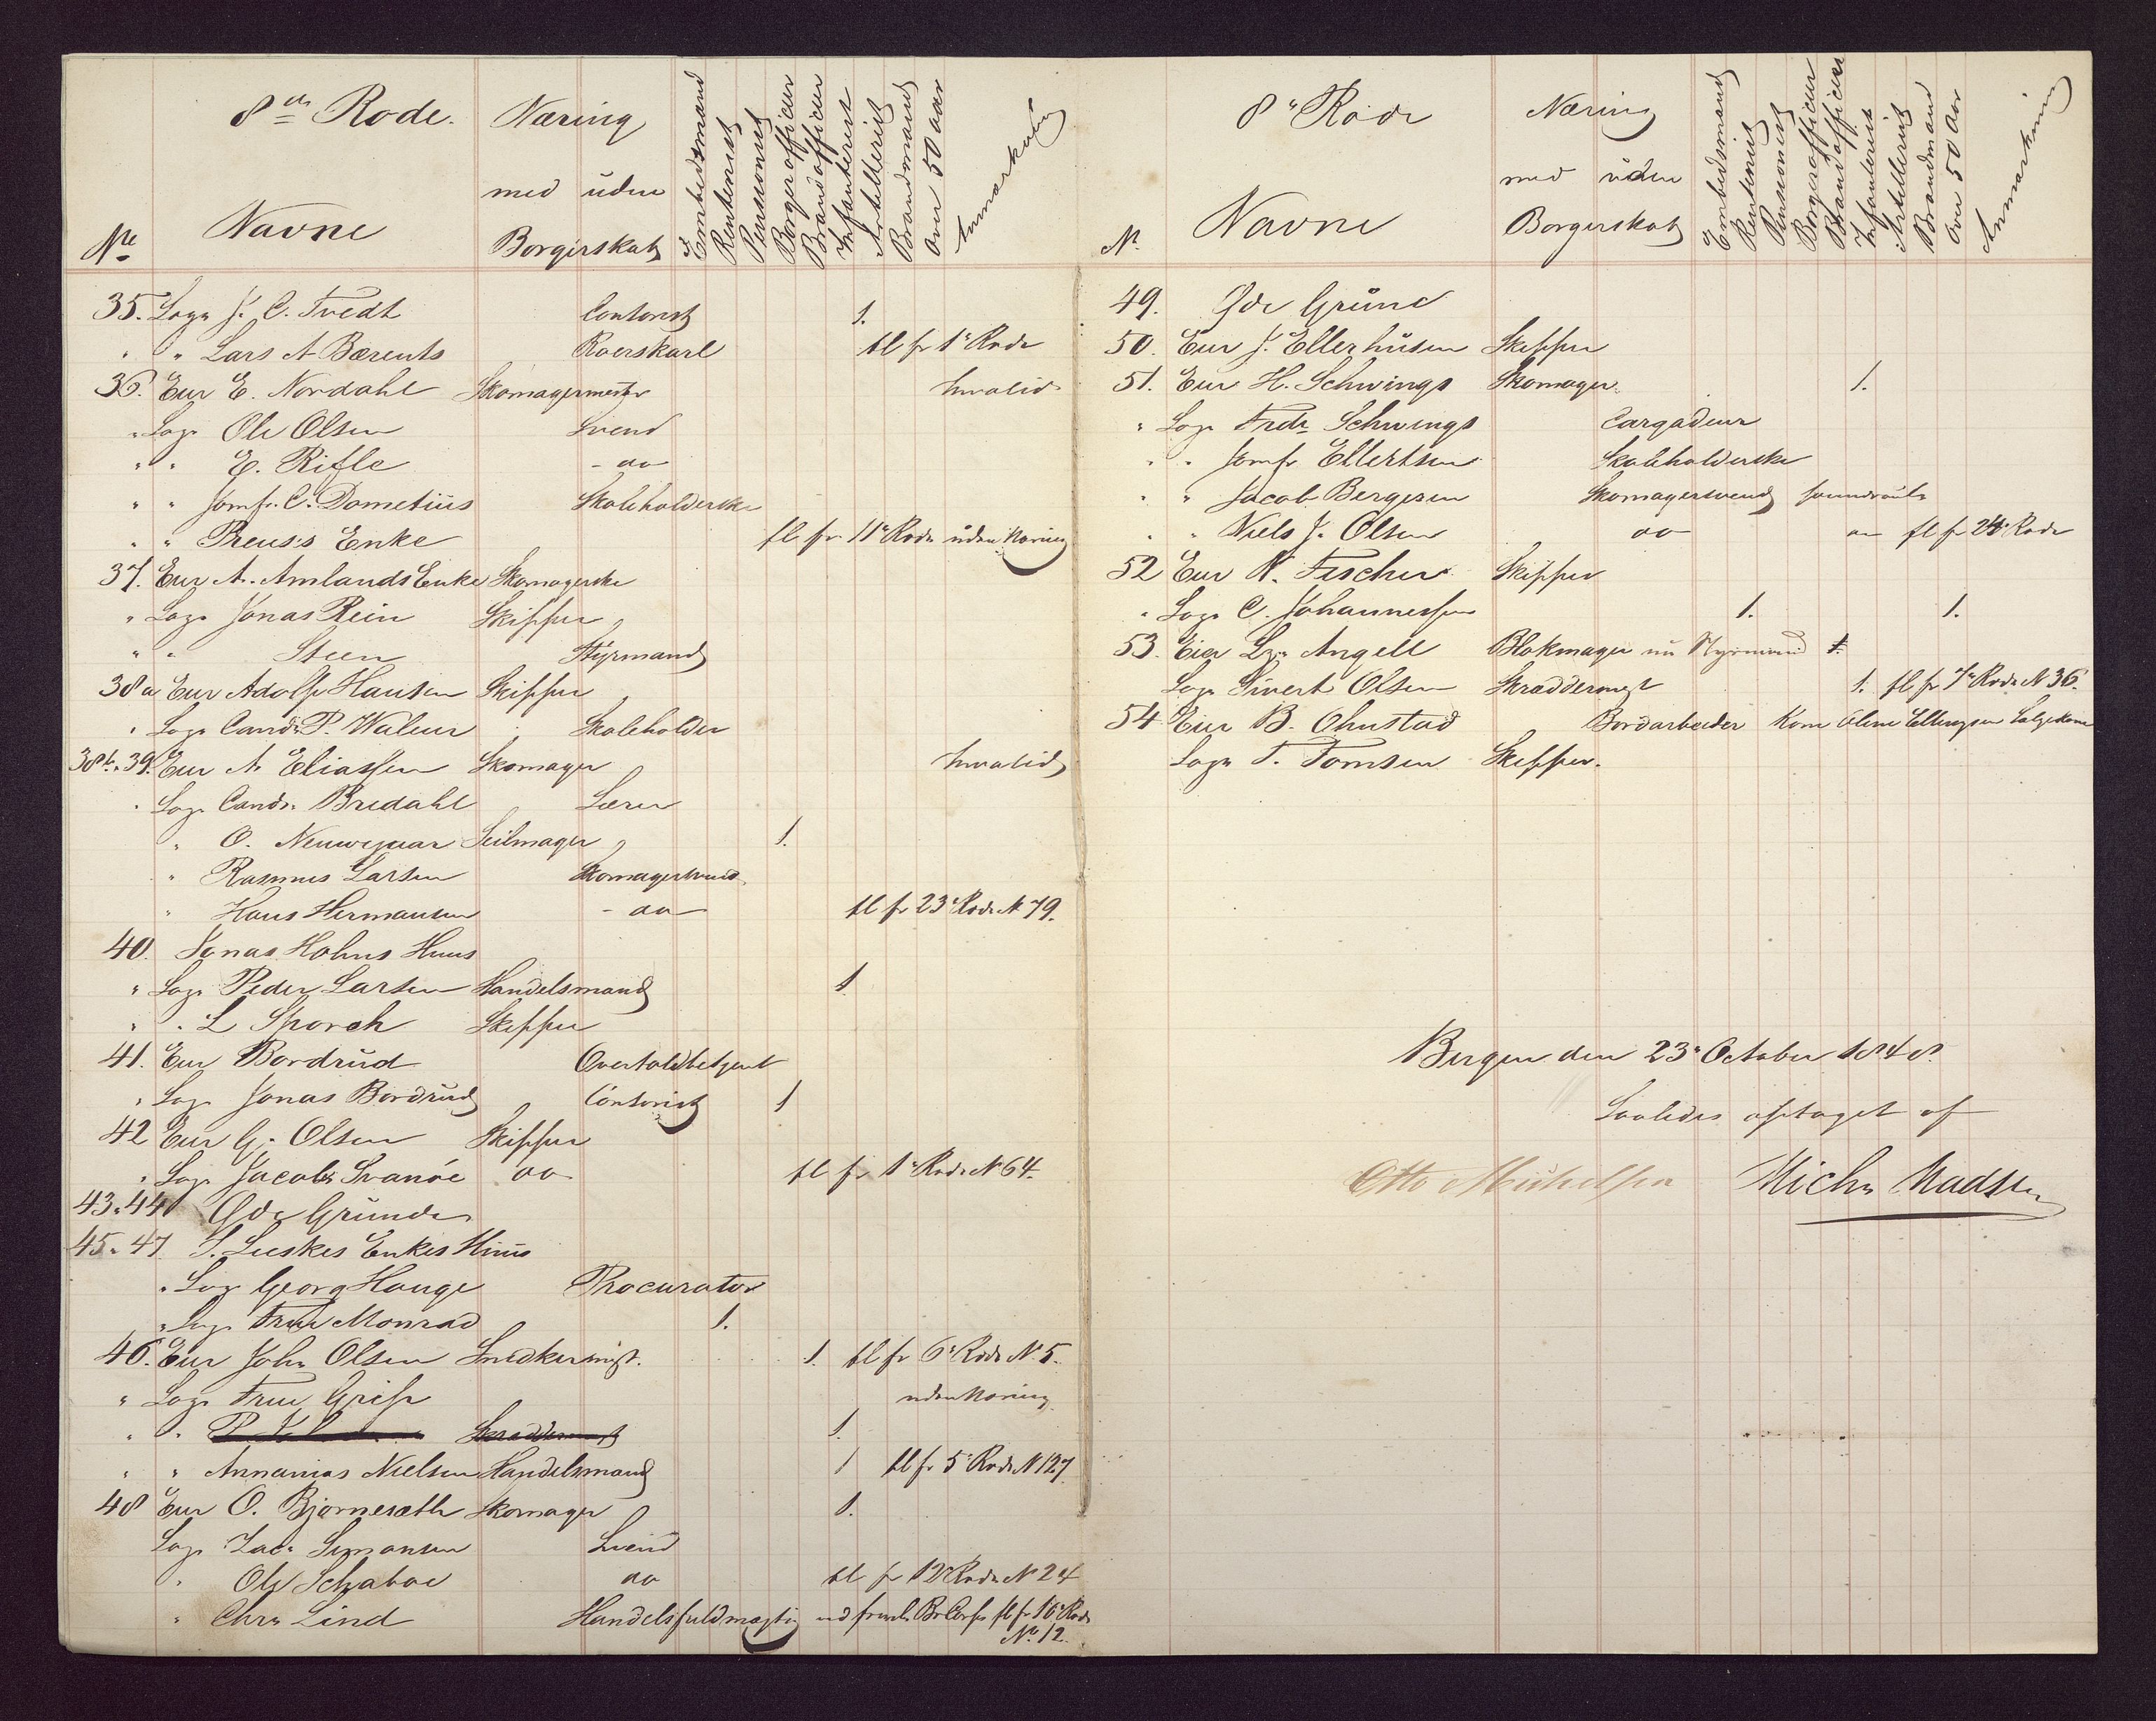 8de Rode. Næring
med uden
Borgerskab
No Navne
Embedsmand
Rentenist
Pensionist
Borgerofficeer
Brandofficeer
Infanterist
Artillerist
Brandmand
Over 50 aar
Anmærkning
35. Loge J. C. Tvedt Contorist 1.
" " Lars A Bærents Roerskarl fl fr 1e Rode
36. Eier E. Nordahl Skomagermester Invalid
" Loge Ole Olsen Svend
" " E. Rifle - do
" " Jomfr. C. Dometius Skoleholderske
" " Preuss's Enke fl fr 11e Rode uden Næring
37. Eier A. Amlands Enke Skomagerske
" Loge Jonas Rein Skipper
" " Steen Styrmand
38a Eier Adolph Hansen Skipper
" Loge Cand. P. Waleur Skoleholder
38b. 39. Eier A. Eliassen Skomager Invalid
" Loge Cand. Bredahl Lærer
" O. Neuwejaar Seilmager 1.
" Rasmus Larsen Skomagersvend
" Hans Hermansen - do fl fr 23e Rode N 79.
40. Jonas Holms Huus
" Loge Peder Larsen Handelsmand 1
" " L Sporck Skipper
41. Eier Bordrud Overtoldbetjent
" Loge Jonas Bordrud Contorist 1
42 Eier G. Olsen Skipper
" Loge Jacob Svanöe do fl fr 1e Rode N 64.
43. 44 Öde Grunde
45. 47 S. Lieskes Enkes Huus
" Loge Georg Hauge Procurator
" Loge Frue Monrad 1.
46. Eier John Olsen Snedkermst. 1. fl fr 6e Rode N. 5.
" Loge Frue Grip uden Næring
" " Skræddermst 1.
" " Annanias Nielsen Handelsmand 1 fl fr 5e Rode N 127
48 Eier O. Bjørnesæth Skomager 1.
Loge Zac. Simonsen Svend
" Ole Schaboe do fl fr 12e Rode N 24
" Chr. Lind Handelsfuldmægtig ved Br Corps fl fr 16e Rode
No 12.
8e Rode Næring
med uden
Borgerskab
N. Navne
Embedsmand
Rentenist
Pensionist
Borgerofficeer
Brandofficeer
Infanterist
Artillerist
Brandmand
Over 50 Aar
Anmærkning
49. Öde Grund
50. Eier J. Ellerhusen Skipper
51. Eier H. Schwings Skomager. 1.
" Loge Fredr. Schwings Cargadeur
" " Jomfr Ellertsen Skoleholderske
" " Jacob Bergesen Skomagersvend
" " Niels J. Olsen do do fl fr 24e Rode
52 Eier N. Fischer Skipper
" Loge C. Johannessen 1. 1.
53. Eier Lz. Angell Blokmager nu Styrmand 1.
Loge Sivert Olsen Skræddermst 1. fl fr 7e Rode N 36.
54 Eier B. Ohnstad Bordarbeider Kone Oline Ellingsen Sælgekone
Loge T. Tomsen Skipper.
Bergen den 23e October 1848.
Saaledes optaget af
Otto Michelsen Mich. Madsen